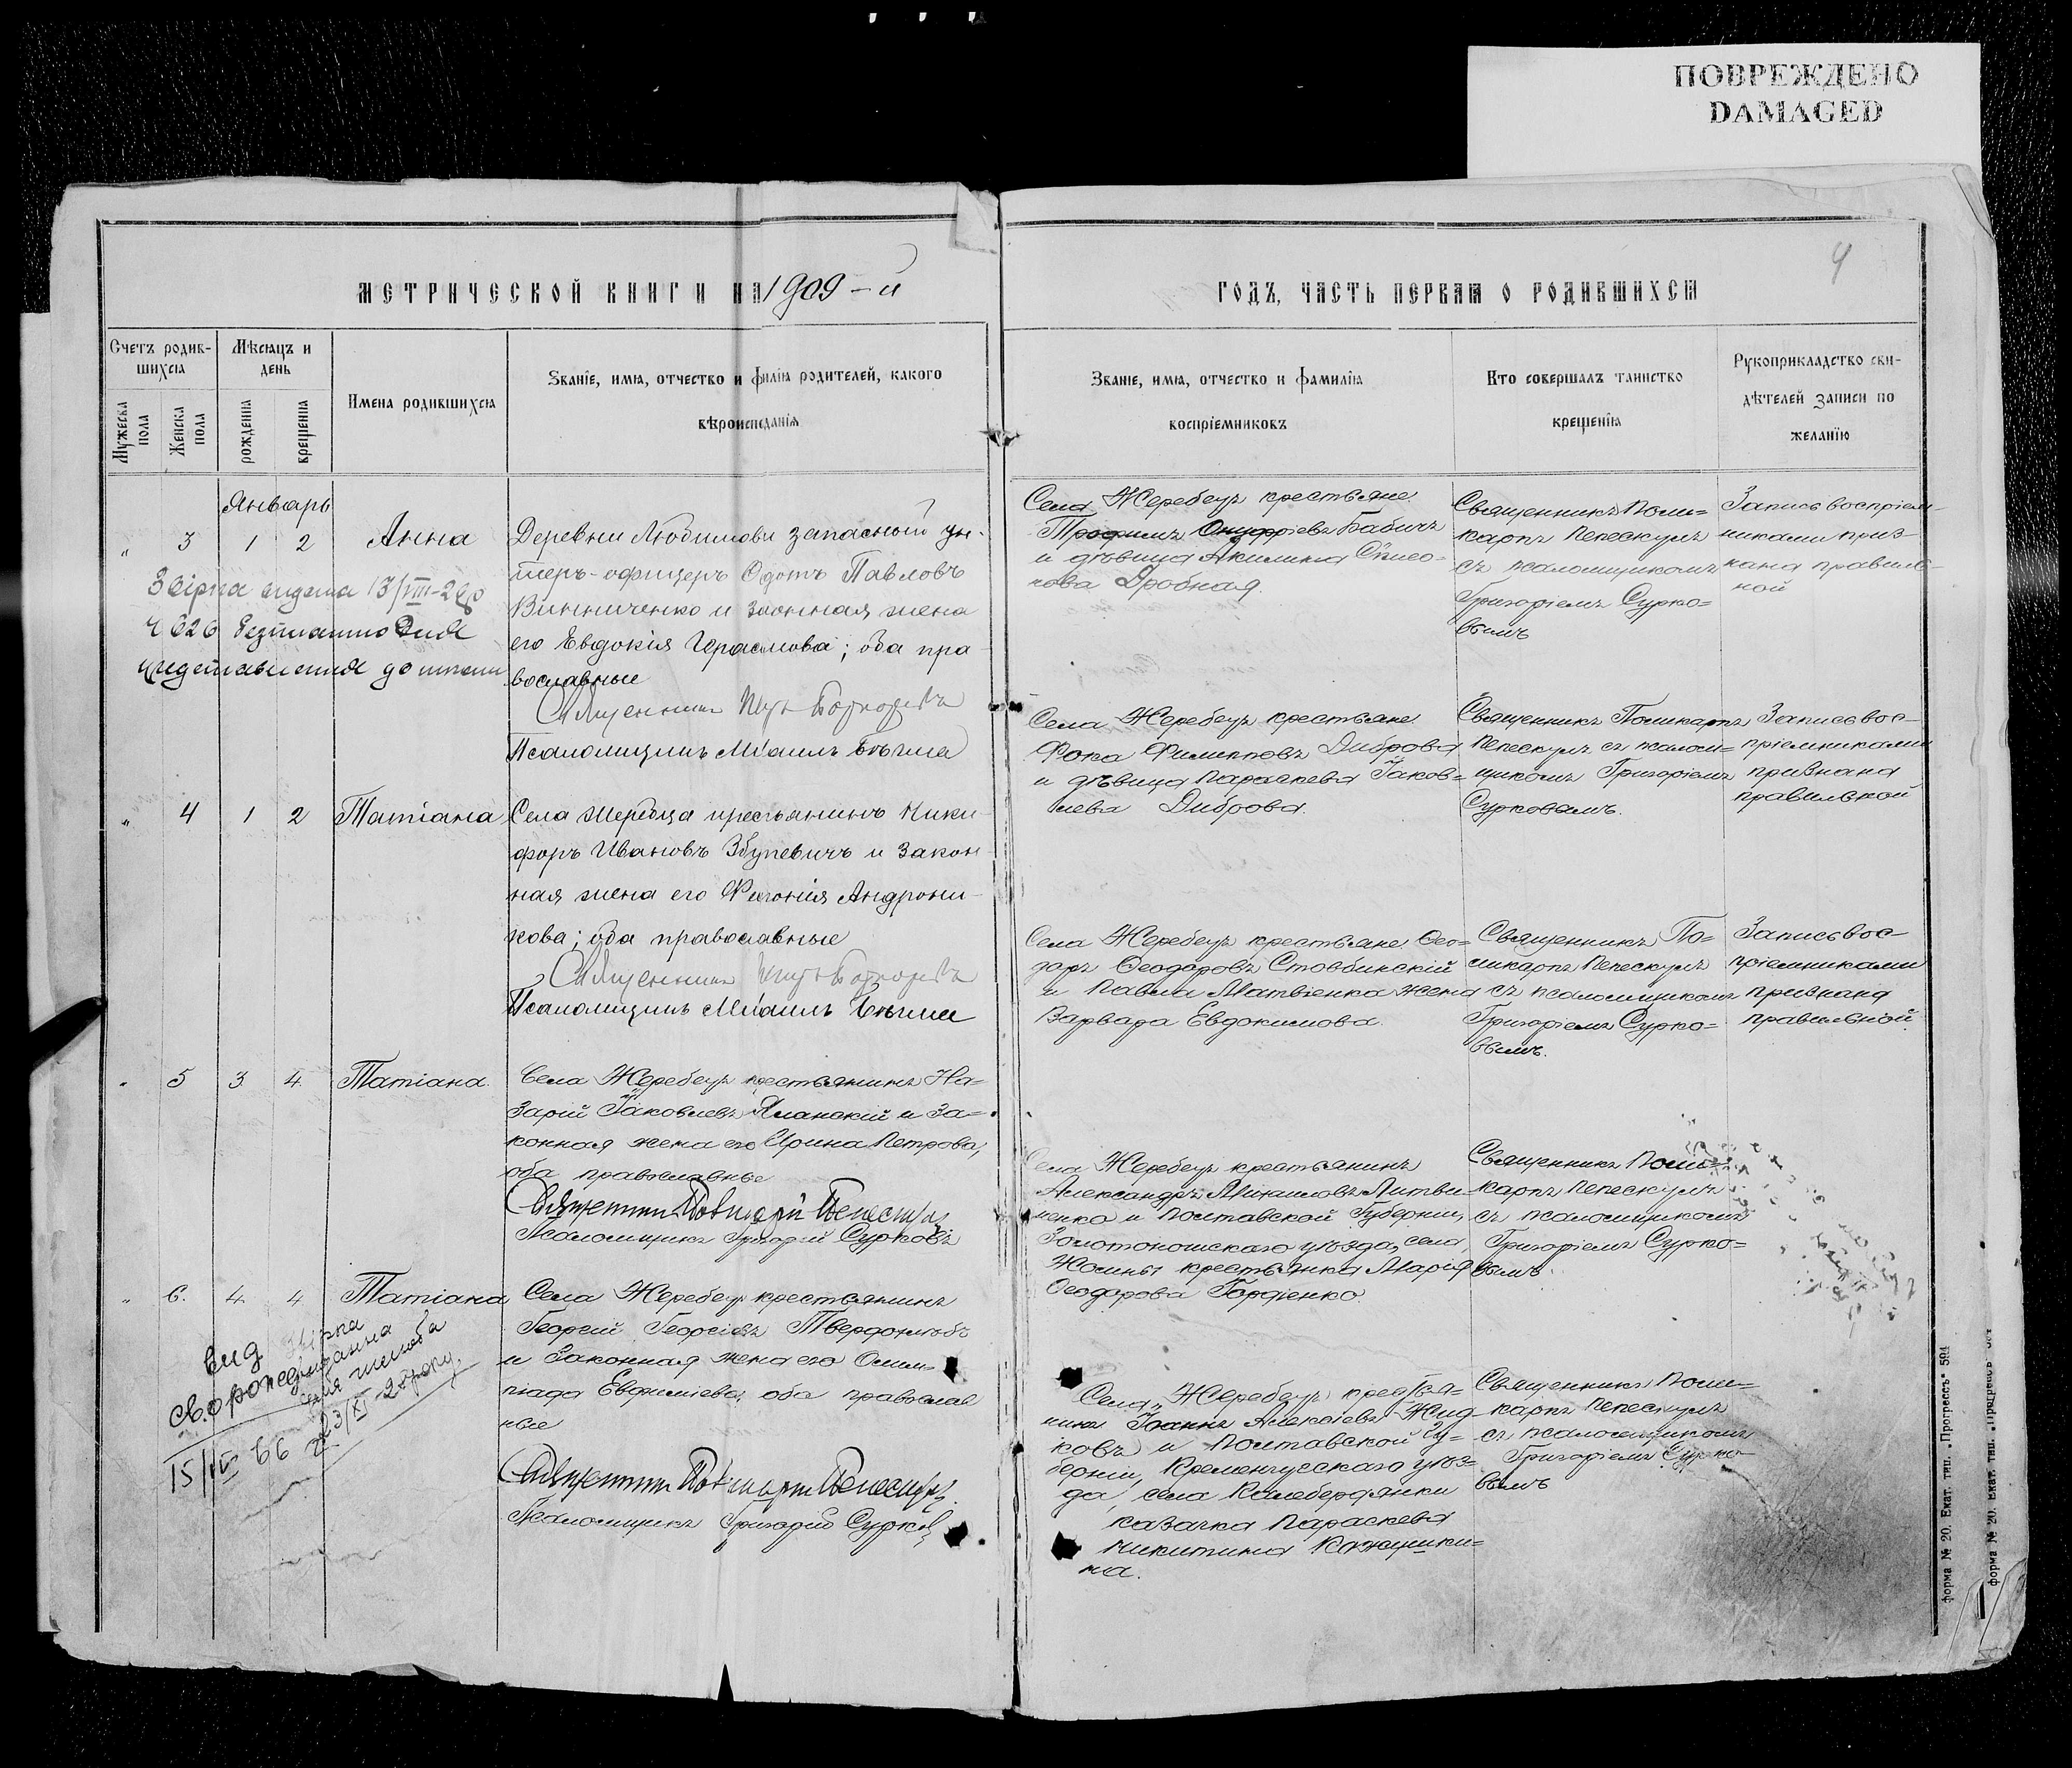 ПОВРЕЖДЕНО
DAMAGED
4
МЕТРИЧЕСКОЙ КНИГИ НА 1909-й
ГОДЪ, ЧАСТЬ ПЕРВАЯ О РОДИВШИХСЯ
Счетъ родив-
шихся
Мужеска пола
Женска пола
Мѣсяцъ и
день
рожденія
крещенія
Имена родившихся
Званіе, имя, отчество и филія родителей, какого
вѣроисповданія
Званіе, имя, отчество и фамилія
воспріемниковъ
Кто совершалъ таинство
крещенія
Рукоприкладство сви-
дѣтелей записи по
желанію
Январь
" 3 1 2 Анна
Деревни Любимовки запасный ун-
теръ-офицеръ Ѳдотъ Павловъ
Винниченко и заонная жена
его Евдокія Герасмова; оба пра-
вославные
Священникъ
Псаломщикъ Михаилъ
13/VIII-28р
Села Жеребецъ крестьяне
Трофимъ Онуфріевъ Бабичъ
и дѣвица Акилина
кова Дробная.
Священникъ Поли=
карпъ Пепескулъ
съ псаломщикомъ
Григоріемъ Сурко=
вымъ
Запись воспріем-
никами приз-
нана правиль-
ной
" 4 1 2 Татіана
Села Жеребца крестьянинъ Ники-
форъ Ивановъ Збукевичъ и закон-
ная жена его Андрони-
кова; оба православные
Священникъ
Псаломщикъ Михаилъ
Села Жеребецъ крестьяне
Фока Филипповъ Диброва
и дѣвица Параскева Іаков=
лева Диброва.
Священникъ Поликарпъ
Пепескулъ съ псалом=
щикомъ Григоріемъ
Сурковымъ.
Запись вос-
пріемниками
признана
правильной
" 5 3 4 Татіана.
Села Жеребецъ крестьянинъ На=
зарій Іаковлевъ Яланскій и за=
конная жена его Ирина Петрова,
оба православные
Священникъ Поликарпъ Пепескулъ
Псаломщикъ Григорій Сурковъ
Села Жеребецъ крестьяне Ѳео=
доръ Ѳеодоровъ Стовбинскій
и Павла Матвіенка жена
Варвара Евдокимова.
Священникъ По=
ликарпъ Пепескулъ
съ псаломщикомъ
Григоріемъ Сурко=
вымъ.
Запись вос-
пріемниками
признана
правильной
" 6. 4 4 Татіана
Села Жеребецъ крестьянинъ
Георгій Георгіевъ Твердохлѣбъ
и законная жена его Олим=
піада Евфиміева, оба православ
ные
Священникъ Поликарпъ Пепескулъ
Псаломщикъ Григорій Сурковъ
Села Жеребецъ крестьянинъ
Александръ Михаиловъ Литви=
ненко и Полтавской Губерніи,
Золотоношскаго уѣзда, села
крестьянка Марія
Ѳеодорова Гордіенко.
Священникъ Поли=
карпъ Пепескулъ
съ псаломщикомъ
Григоріемъ Сурко=
вымъ.
Села Жеребецъ крестья=
нинъ Іоаннъ Алексіевъ Жид-
ковъ и Полтавской Гу=
берніи, Кременчугскаго уѣз=
да, села Келебердянки
казачка Параскева
Никитина
на.
Священникъ Поли=
карпъ Пепескулъ
съ псаломщикомъ
Григоріемъ Сурко-
вымъ
форма № 20. Екат. тип. „Прогрессъ" 594
форма № 20. Екат. тип. „Прогрессъ"